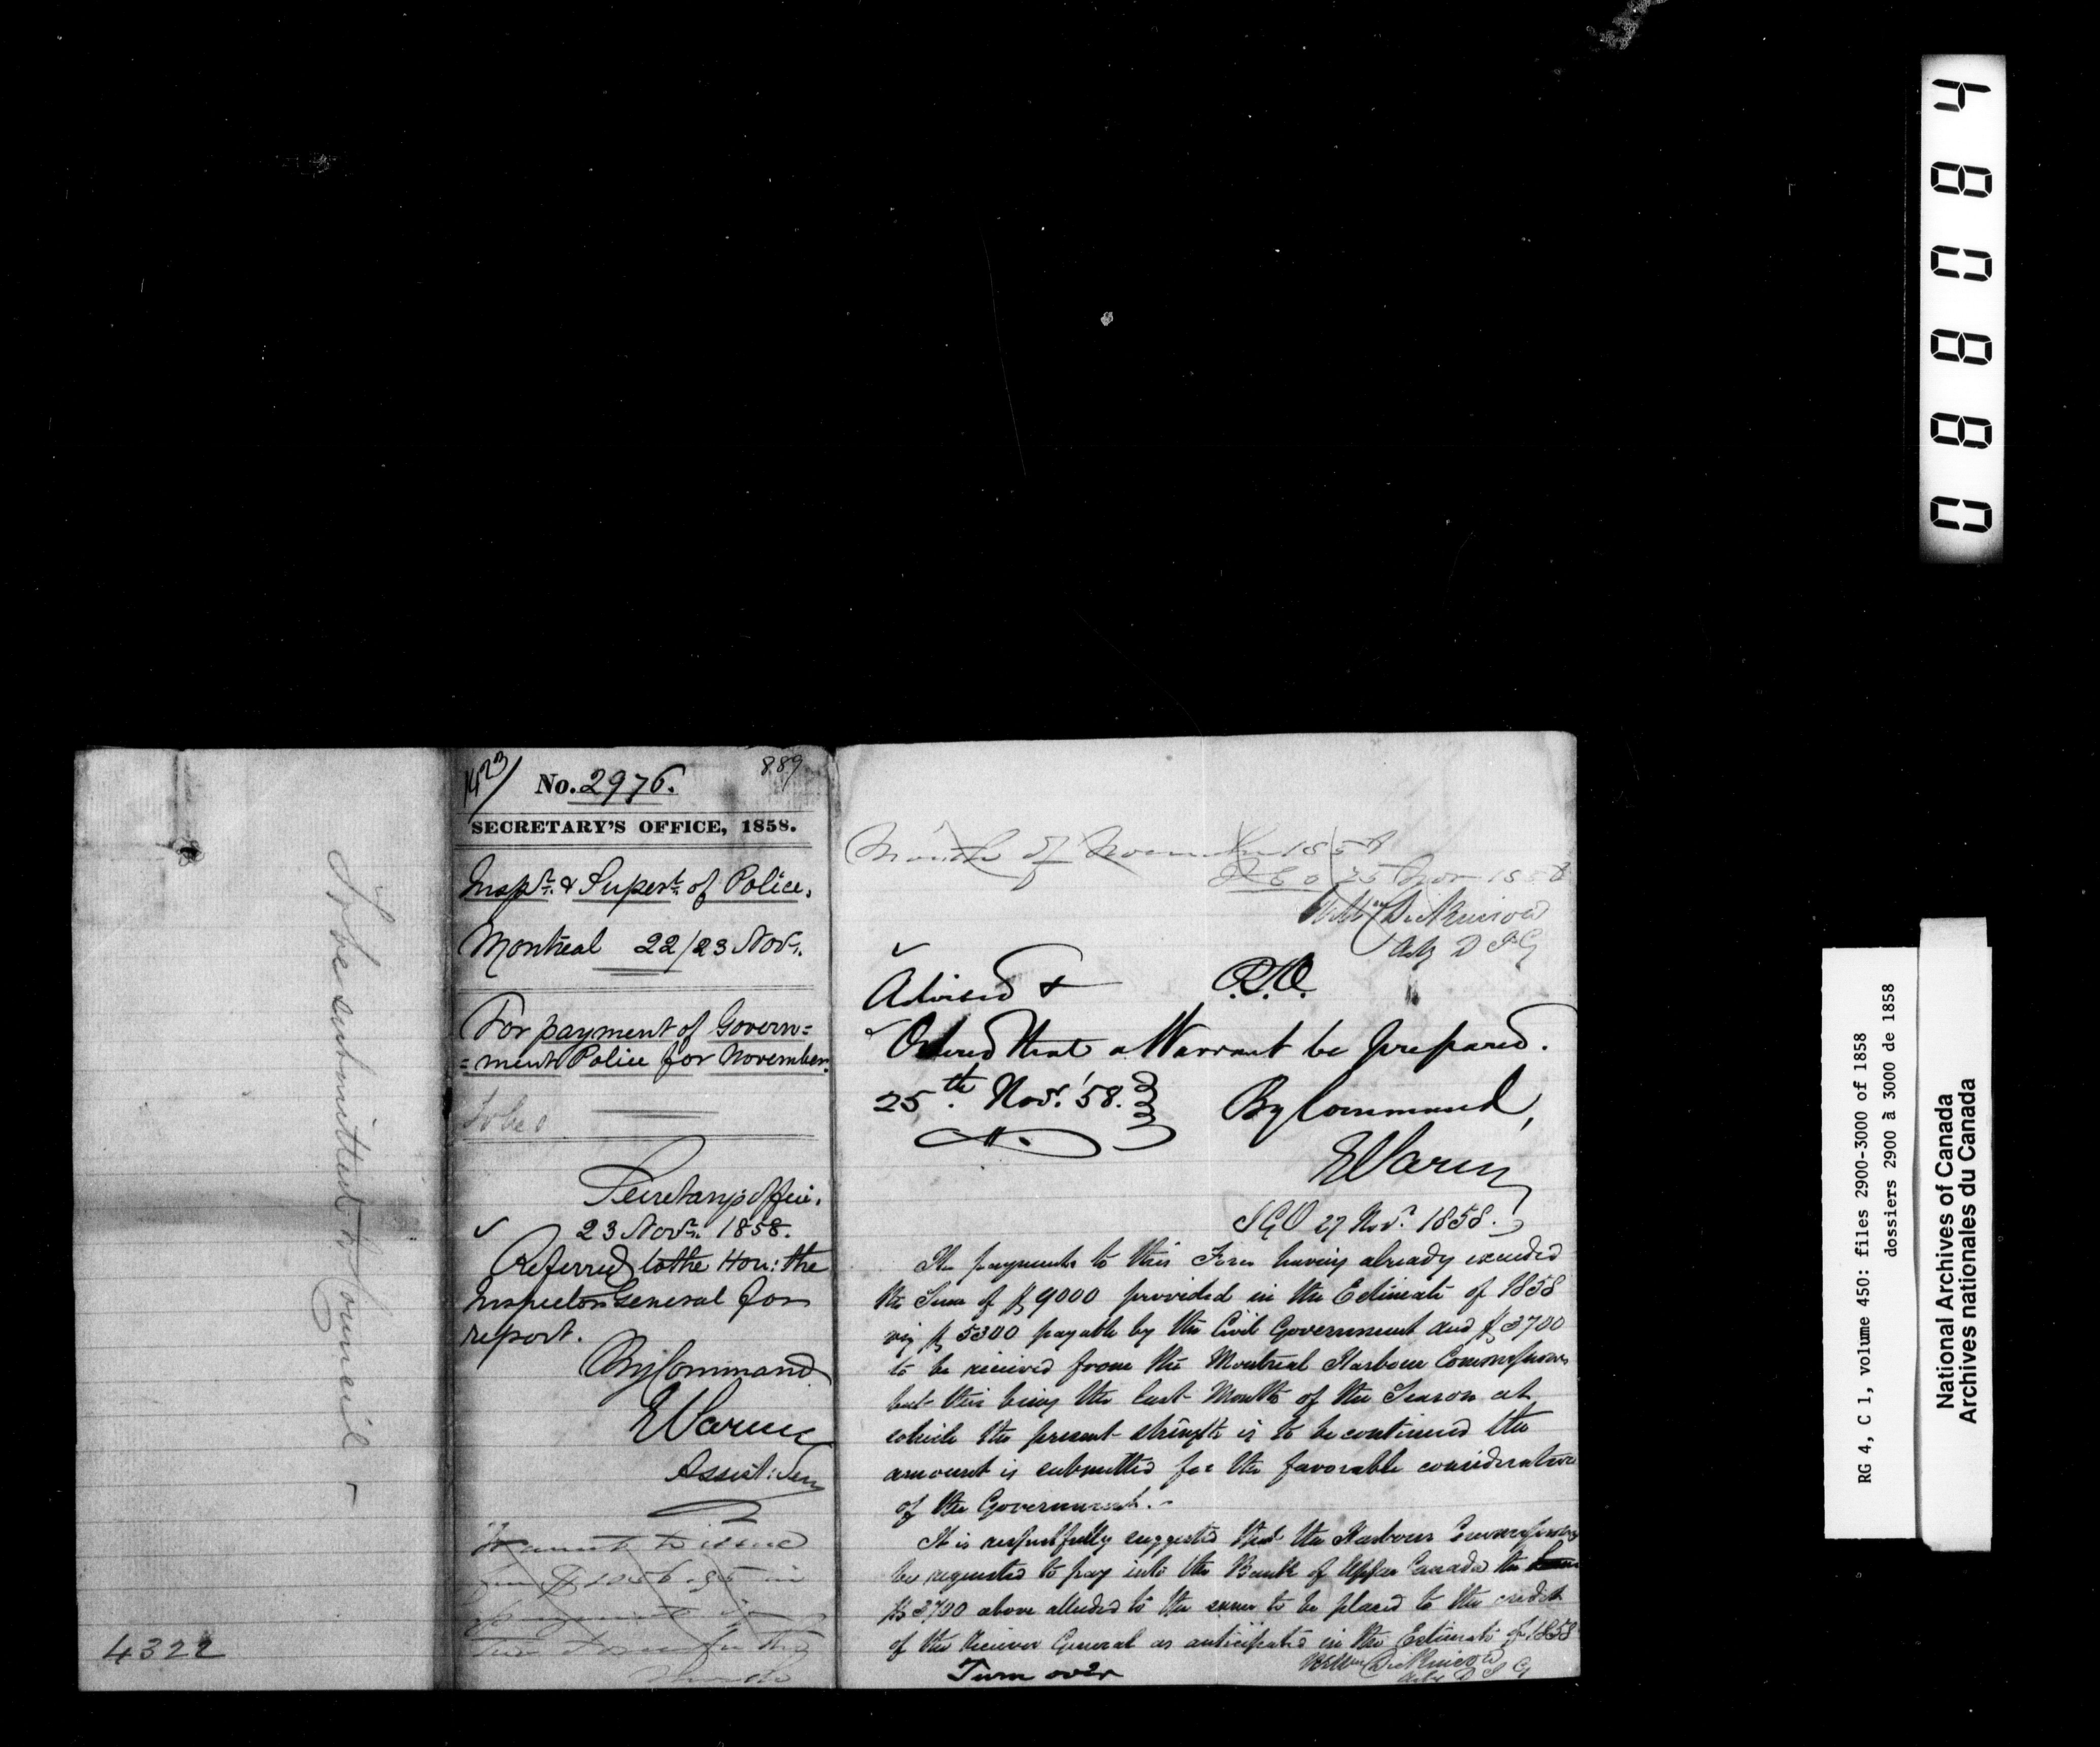 To be submitted to Council -
4322
1423/
No. 2976.
889
SECRETARY'S OFFICE, 1858.
Inspr. & Supert. of Police,
Montreal 22/23 Novr.
For payment of Govern=
=ment Police for November.
To be
Secretary's Office,
23 Novr. 1858.
Referred to the Hon: the
Inspector General for
report.
By Command
E Parent
Assist: Secy
Warrant to issue
for $1056.95 in
payment
this
Month
Month of November 1858
I G O 25 Nov 1858
Wm Dickinson
Actg D I G
Advised &
P.S.O.
Ordered that a Warrant be prepared.
25th. Novr. '58.
By Command,
E Parent
I G O 27 Novr. 1858.
The payments to this Force having already exceeded
the Sum of $9000 provided in the Estimate of 1858
viz $5300 payable by the Civil Government and $3700
to be received from the Montreal Harbour Commissioners
but this being the last Month of the Season at
which the present strength is to be continued the
amount is submitted for the favorable consideration
of the Government.
It is respectfully suggested that the Harbour Commissioners
be requested to pay into the Bank of Upper Canada the
$3700 above alluded to the same to be placed to the credit
of the Receiver General as anticipated in the Estimate of 1858
Wm Dickinson
Actg D I G
Turn over
088084
RG 4, C 1, volume 450: files 2900-3000 of 1858
dossiers 2900 à 3000 de 1858
National Archives of Canada
Archives nationales du Canada